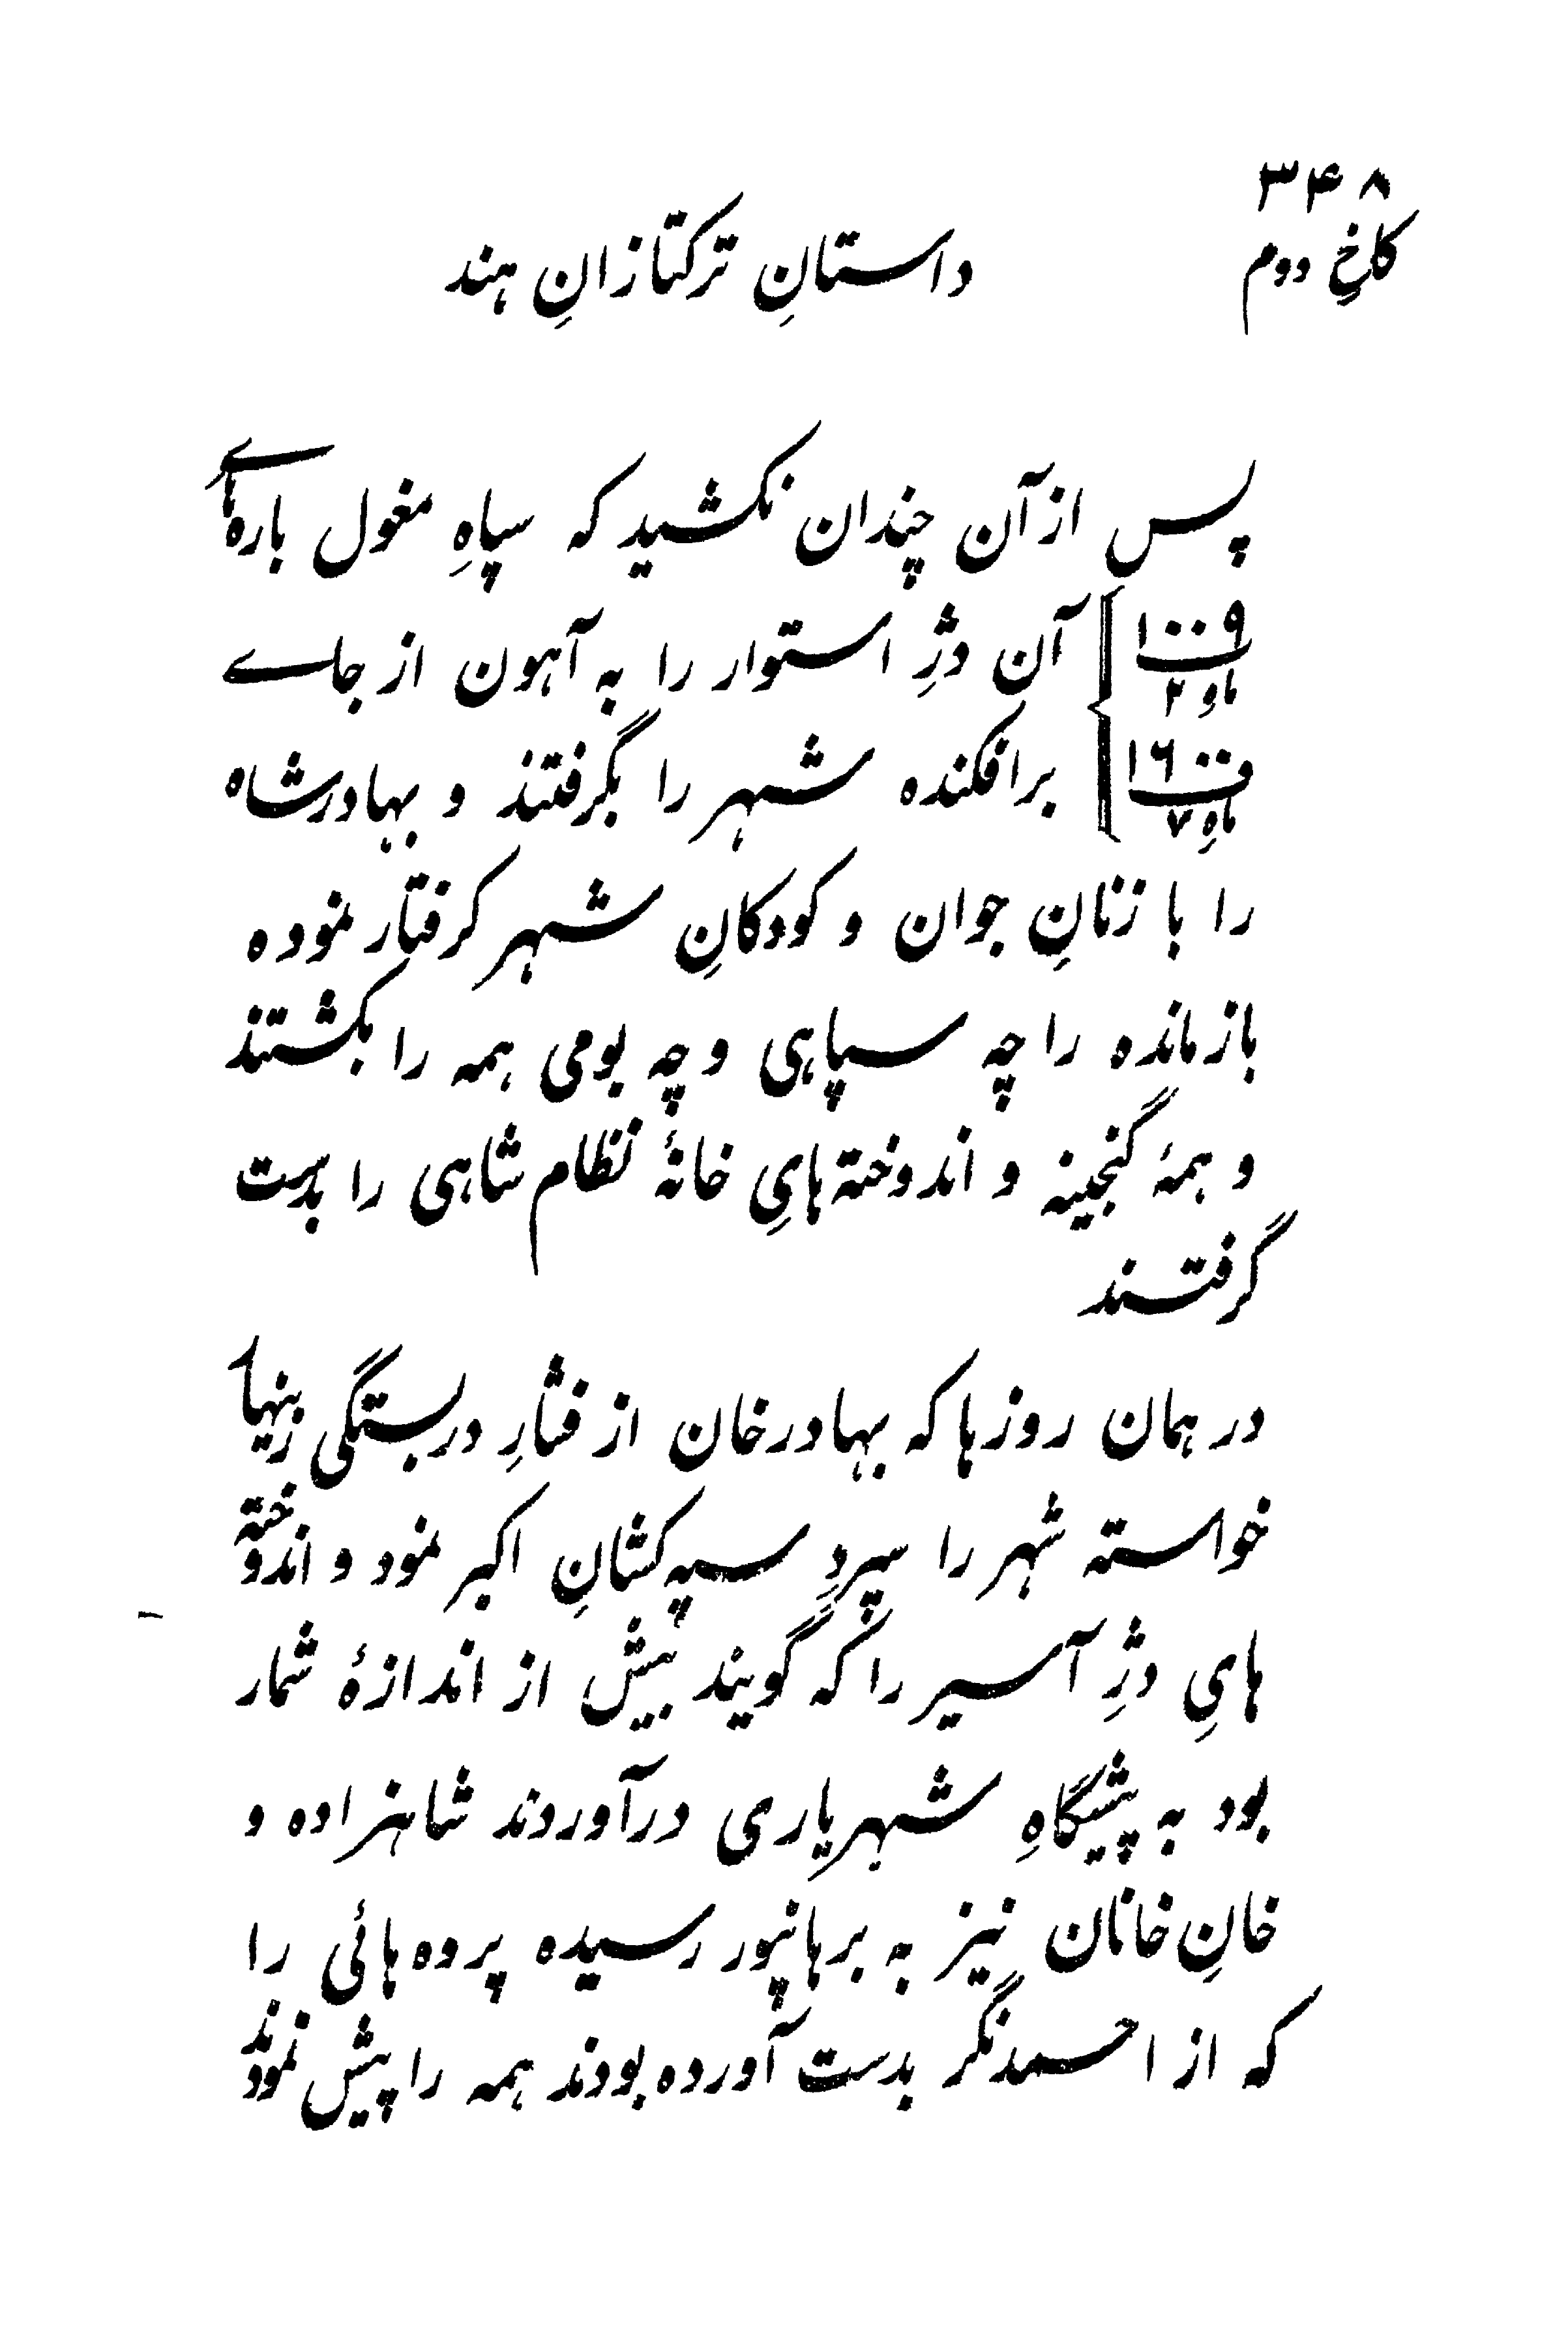 ۳۴۸
کاخِ دوم
داستانِ ترکتازانِ هند
پس ازآن چندان نکشید که سپاهِ مغول باره‌هاے
۱۰۰۹ ماهِ ۲ آن دژِ استوار را به آهون از جاے
۱۶۰۰ ماهِ ۷ برافکنده شهر را بگرفتند و بهادرشاه
را با زنانِ جوان و کودکانِ شهر کرفتار نموده
بازمانده را چه سپاهی و چه بومی همه را بکشتند
و همهٔ گنجینه و اندوخته‌هایِ خانهٔ نظام شاهی را بدست
گرفتند
در همان روزها که بهادرخان از فشارِ دربستگی زینها
خواسته شهر را سپردِ سپه‌کشانِ اکبر نمود و اندوخته
هایِ دژِ آسیر را که گویند بیش از اندازهٔ شمار
بود به پیشگاهِ شهریاری درآوردند شاهزاده و
خانِ خانان نیز به برهانپور رسیده پروه‌هائی را
که از احمدنگر بدست آورده بودند همه را پیش نمودند